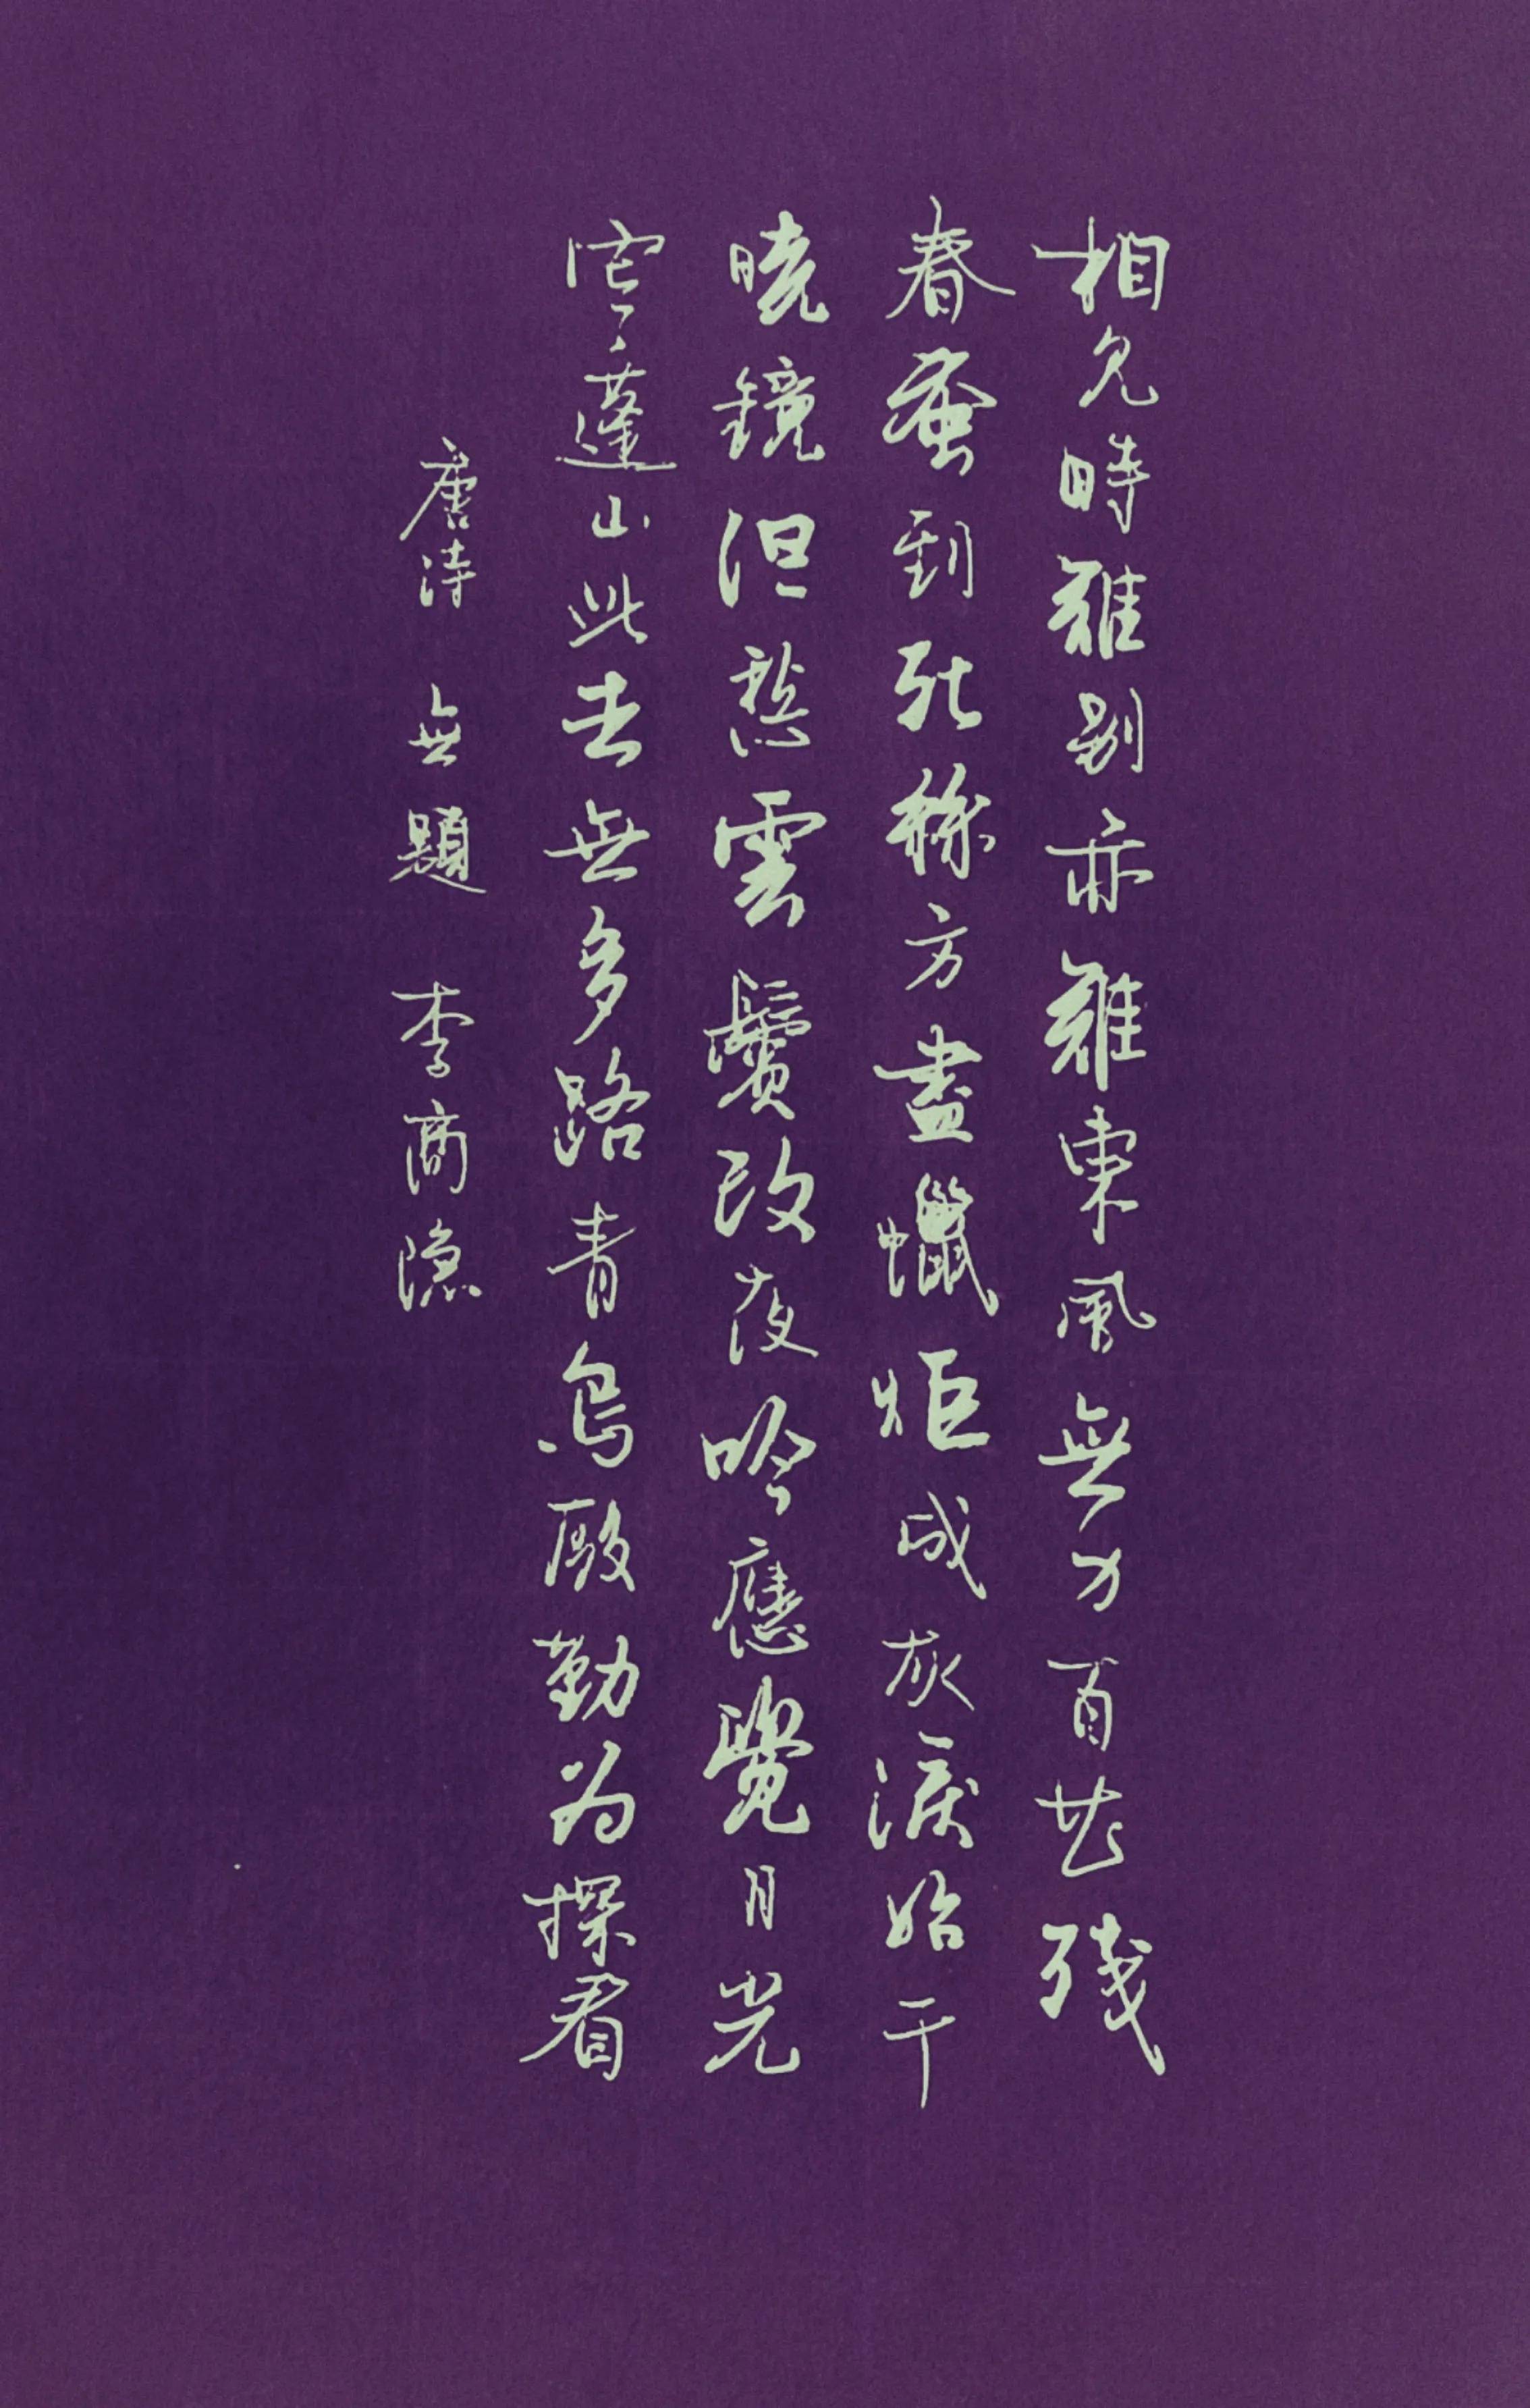 相見時難別亦難東風無力百花殘
春蚕到死絲方盡蠟炬成灰淚始干
曉鏡但愁雲鬢改夜吟應覺月光
寒蓬山此去無多路青鳥殷勤为探看
唐詩 無題 李商隐